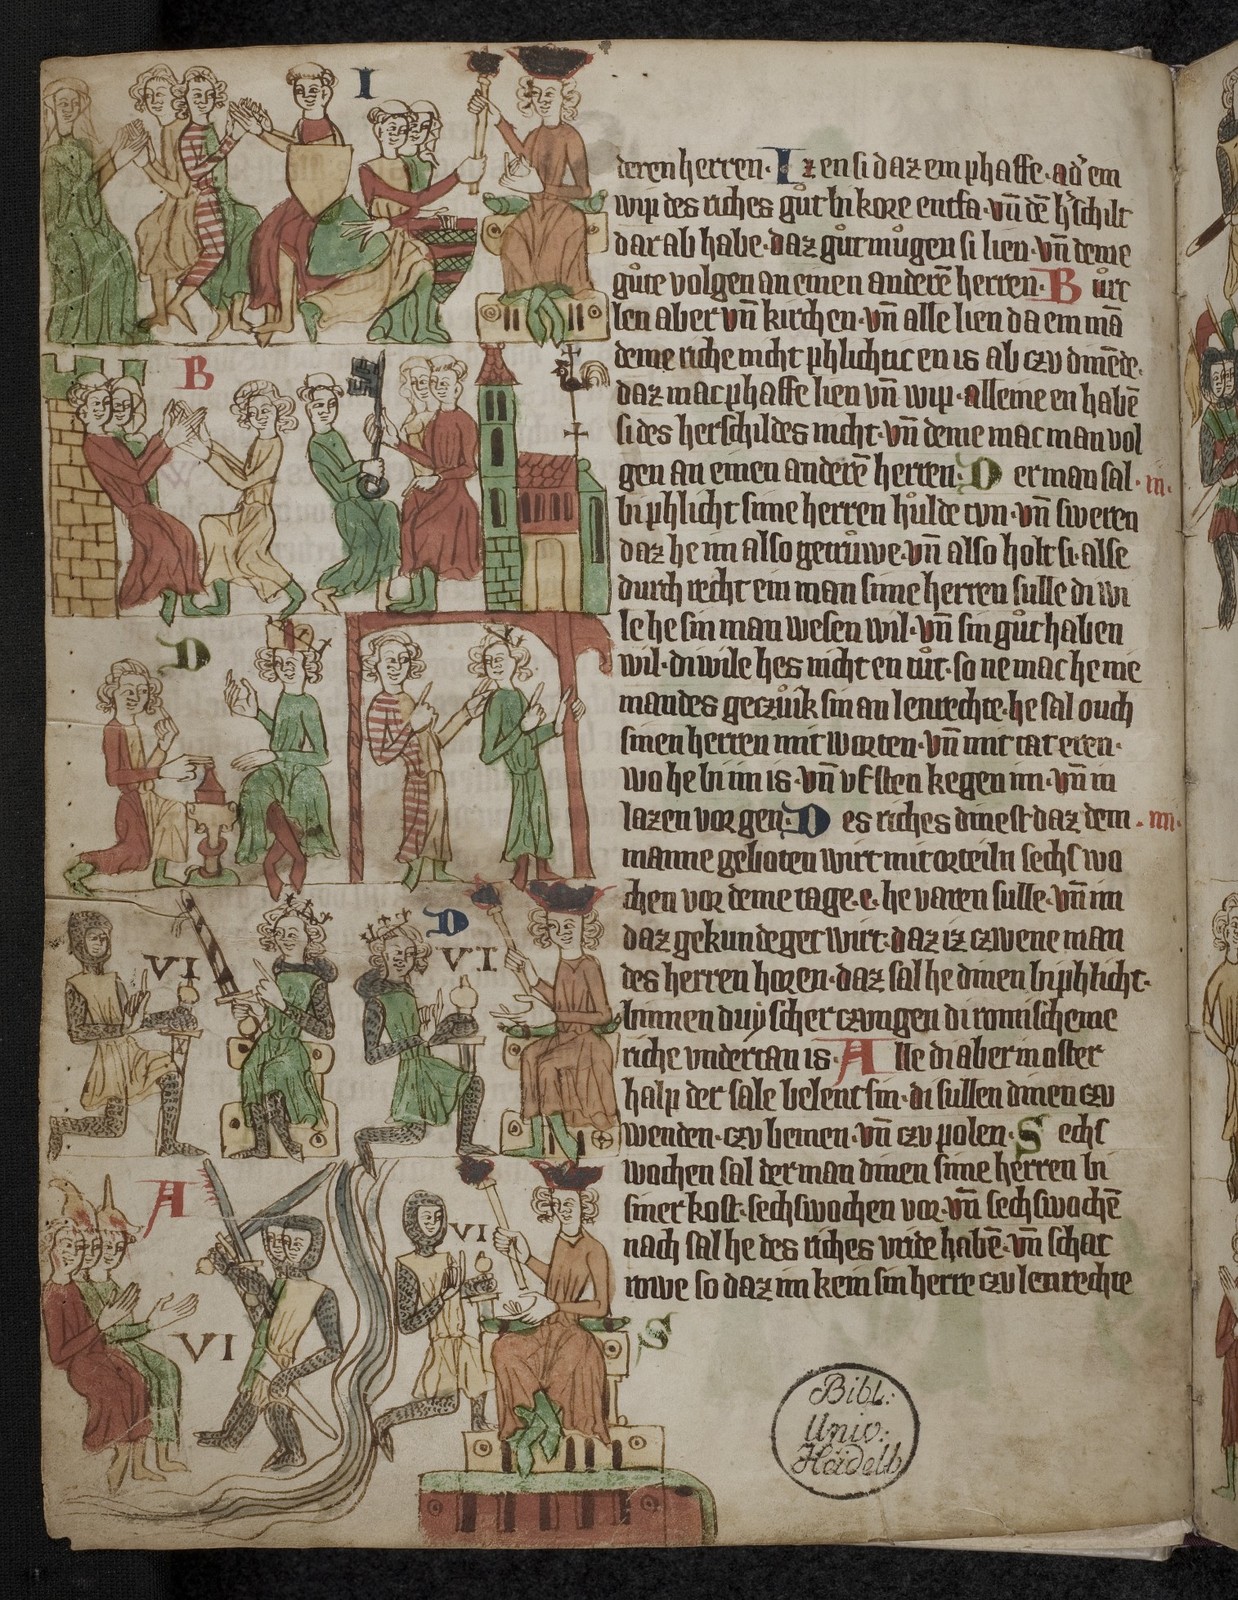 I
B
D
VI
D
V.I.
A
VI
VI
S
deren herren· Iz en si daz ein phaffe· ad' ein
wip des riches gůt bi kore entfa· vn̄ dē h'schilt
dar ab habe· daz gůt můgen si lien· vn̄ deme
gůte volgen an einen anderē herren· Bůrc
len aber vn̄ kirchen· vn̄ alle lien da ein mā
deme riche nicht phlichtic en is ab czu dinēde·
daz mac phaffe lien vn̄ wip· alleine en habē
si des herschildes nicht· vn̄ deme mac man vol
gen an einen anderē herren· Der man sal ·iii·
bi phlicht sime herren hůlde tvn· vn̄ sweren
daz he im also getrůwe· vn̄ also holt si· alse
durch recht ein man sime herren sulle di wi
le he sin man wesen wil· vn̄ sin gůt haben
wil· di wile hes nicht en tůt· so ne mac he nie
mandes geczůik sin an lenrechte· he sal ouch
sinen herren mit worten· vn̄ mit tat eren·
wo he bi im is· vn̄ vf sten kegen im· vn̄ in
lazen vor gen· Des riches dinest daz dem ·iiii·
manne geboten wirt mit orteiln sechs wo
chen vor deme tage· e· he varen sulle· vn̄ im
daz gekundeget wirt· daz iz czwene man
des herren horen· daz sal he dinen bi phlicht·
binnen duÿscher czungen di romischeme
riche vndertan is· Alle di aber in oster
halp der sale belent sin· di sullen dinen czu
wenden· czu bemen· vn̄ czu polen· Sechs
wochen sal der man dinen sime herren bi
siner kost· sechs wochen vor· vn̄ sechs wochē
nach sal he des riches vride habē· vn̄ schac
rowe so daz im kein sin herre czu lenrechte
Bibl:
Univ:
Heidelb